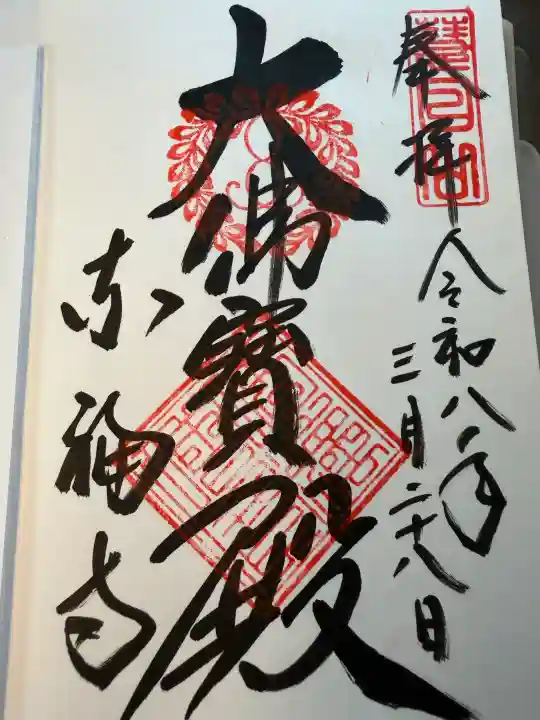 奉拝
令和八年
三月二十八日
大佛寳殿
東福寺
慧日山